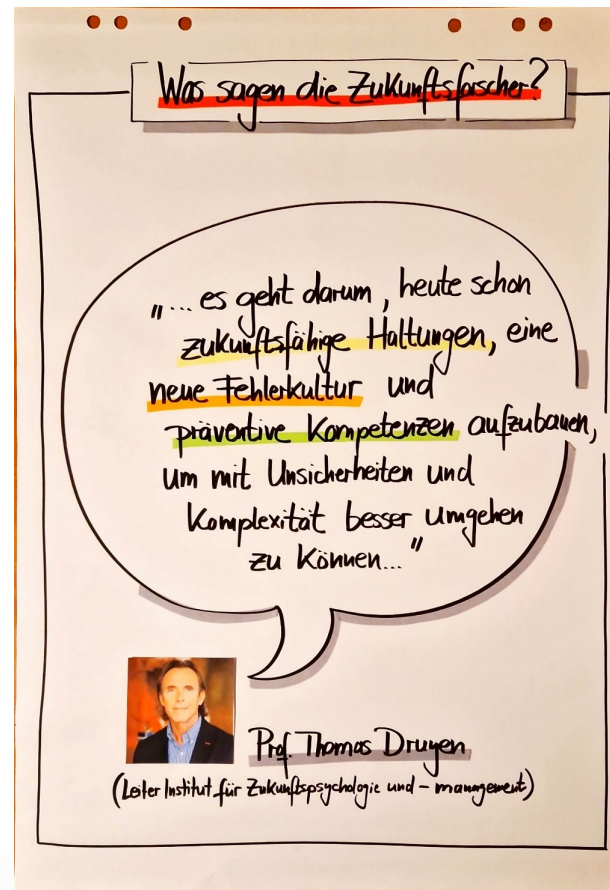 Was sagen die Zukunftsforscher?
„... es geht darum, heute schon
zukunftsfähige Haltungen, eine
neue Fehlerkultur und
präventive Kompetenzen aufzubauen,
um mit Unsicherheiten und
Komplexität besser umgehen
zu können..."
Prof. Thomas Druyen
(Leiter Institut für Zukunftspsychologie und - management)